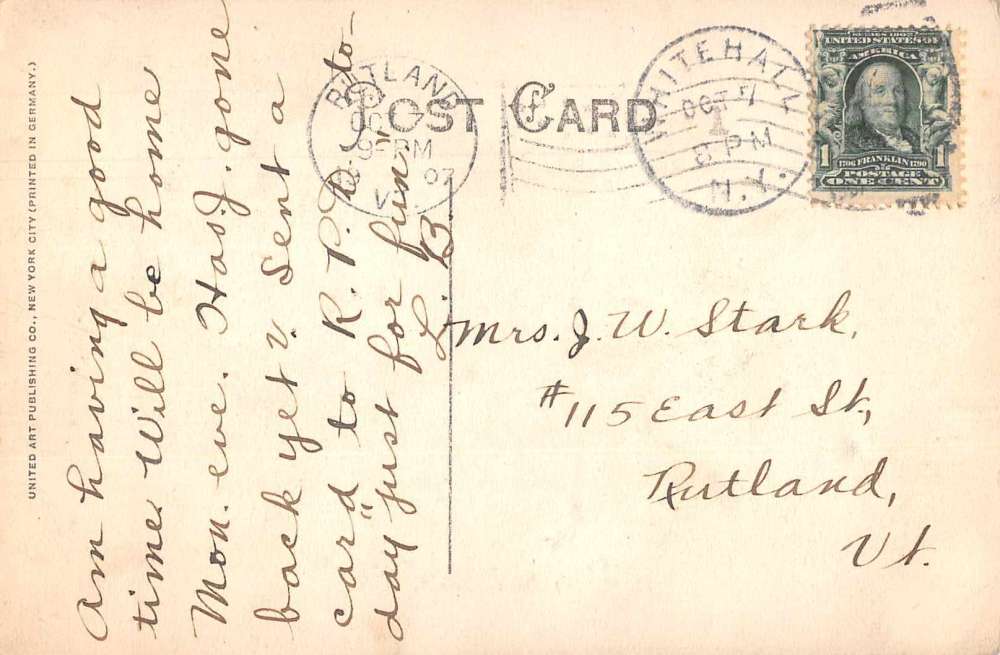 UNITED ART PUBLISHING CO., NEW YORK CITY (PRINTED IN GERMANY.)
Am having a good
time. Will be home
Mon. eve. Has J. gone
back yet? Sent a
card to R. P. D. to-
day "just for fun"
L. B.
POST CARD
RUTLAND
OCT 7
9 PM
07
VT.
WHITEHALL
OCT 7
1
8 PM
N.Y.
SERIES 1902
UNITED STATES OF
AMERICA
1 1
1706 FRANKLIN 1790
POSTAGE
ONE CENT
Mrs. J. W. Stark,
#115 East St.,
Rutland,
Vt.